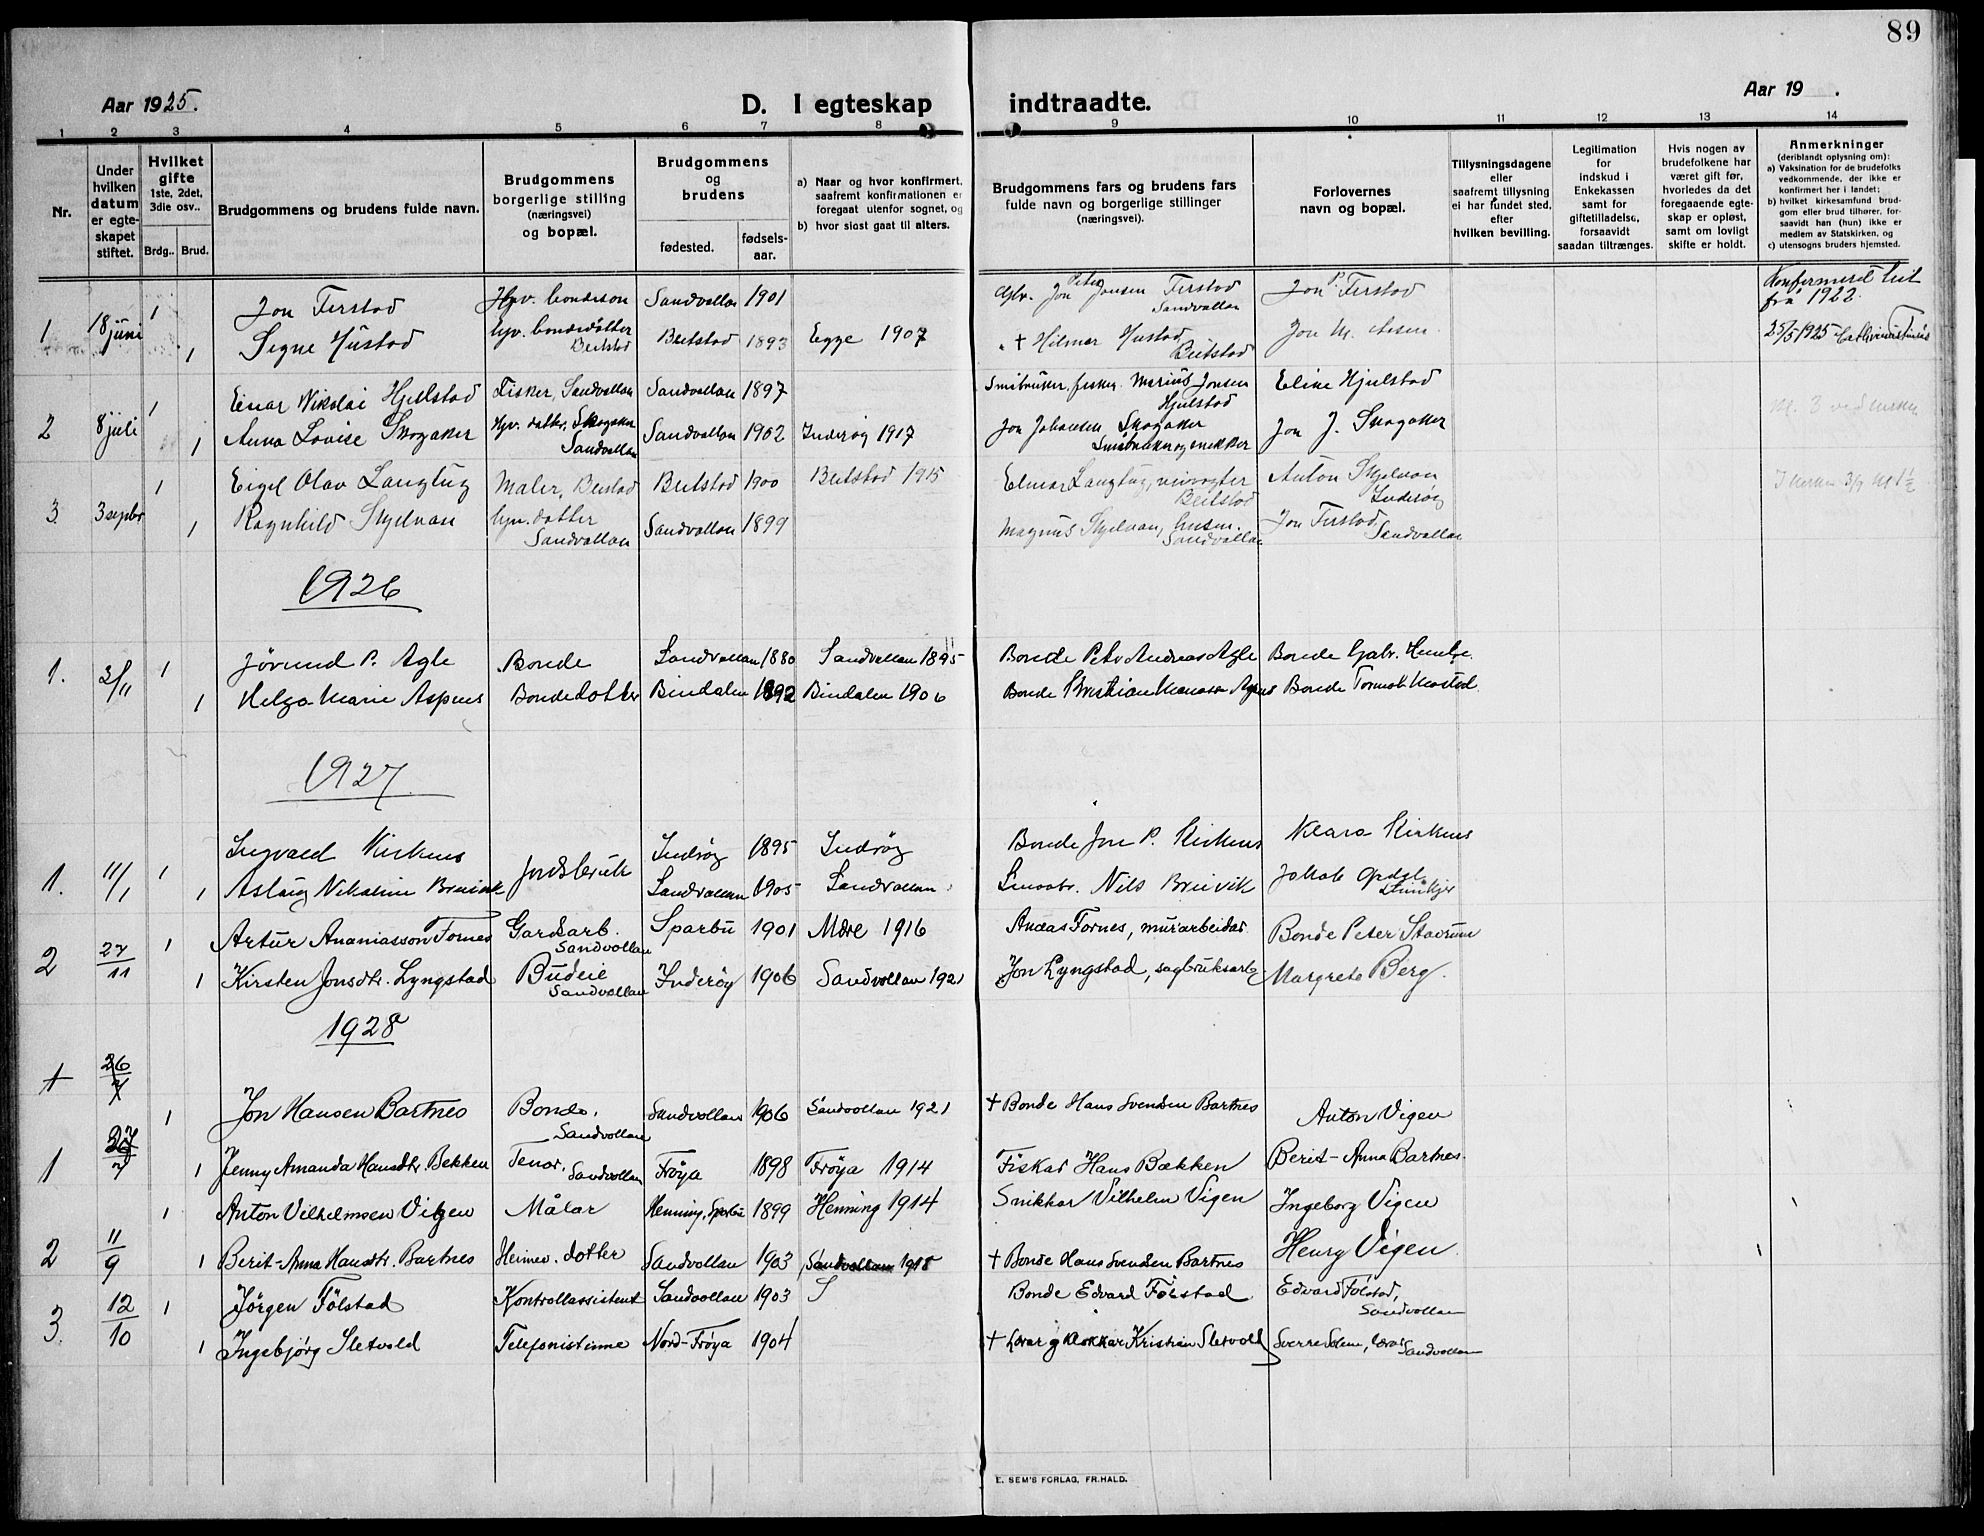 89
Aar 1925.
D. I egteskap indtraadte.
Aar 19 .
1 2 3 4 5 6 7 8 9 10 11 12 13 14
Nr.
Under hvilken datum er egteskapet stiftet.
Hvilket gifte 1ste, 2det, 3die osv..
Brdg.. Brud.
Brudgommens og brudens fulde navn.
Brudgommens borgerlige stilling (næringsvei) og bopæl.
Brudgommens og brudens
fødested. fødsels-aar.
a) Naar og hvor konfirmert, saafremt konfirmationen er foregaat utenfor sognet, og
b) hvor sidst gaat til alters.
Brudgommens fars og brudens fars fulde navn og borgerlige stillinger (næringsvei).
Forlovernes navn og bopæl.
Tillysningsdagene eller saafremt tillysning ei har fundet sted, efter hvilken bevilling.
Legitimation for indskud i Enkekassen samt for giftetilladelse, forsaavidt saadan tiltrænges.
Hvis nogen av brudefolkene har været gift før, hvorledes da det foregaaende egteskap er opløst, samt om lovligt skifte er holdt.
Anmerkninger (deriblandt oplysning om):
a) Vaksination for de brudefolks vedkommende, der ikke er konfirmert her i landet;
b) hvilket kirkesamfund brudgom eller brud tilhører, forsaavidt han (hun) ikke er medlem av Statskirken, og
c) utensogns bruders hjemsted.
1 18 juni 1 Jon Ferstad Sandvollan 1901 Jon Peter Jonsen Ferstad Sandvollan Jon P. Ferstad fra 1922
1 Signe Hustad Beitstad Beitstad 1893 Egge 1907 + Hilmar Hustad Beitstad Jon M. 25/5 1925
2 8 juli 1 Einar Nikolai Hjulstad Fisker, Sandvollan Sandvollan 1897 Marius Jonsen Hjulstad Eline Hjulstad
1 Anna Lovise Skogaker Skogaker Sandvollan Sandvollan 1902 Inderøy 1917 Jon Johansen Skogaker Jon J. Skogaker
3 3 septbr 1 Eigil Olav Langlug Maler, Beitstad Beitstad 1900 Beitstad 1915 Elmar Langlug, Beitstad Anton Skjelvan Inderøy
1 Ragnhild Skjelvan datter Sandvollan Sandvollan 1899 Magnus Skjelvan, Sandvollan Jon Ferstad, Sandvollan
1926
1. 2/11 1 Jørund P. Agle Bonde Sandvollan 1880 Sandvollan 1895 Bonde Peter Andreas Agle Bonde Gabr.
1 Helga Marie Aspnes Bondedotter Bindalen 1892 Bindalen 1906 Bonde Kristian Aspnes Bonde
1927
1. 11/1 1 Ingvald Kirknes Inderøy 1895 Inderøy Bonde Jon P. Kirknes Klara Kirknes
1 Aslaug Nikoline Breivik Sandvollan 1905 Sandvollan Smaabr. Nils Breivik Jakob Opdal
2 27/11 1 Artur Ananiasson Fornes Gardsarb. Sandvollan Sparbu 1901 Mære 1916 Fornes, murarbeidar Bonde Peter Stavrum
1 Kirsten Jonsdtr. Lyngstad Budeie Sandvollan Inderøy 1906 Sandvollan 1921 Jon Lyngstad, sagbruksarb. Margrete Berg.
1928
1 26/7
1 Jon Hansen Bartnes Bonde, Sandvollan Sandvollan 1906 Sandvollan 1921 + Bonde Hans Svendsen Bartnes Anton Vigen
1 27/7 1 Jenny Amanda Hansdtr. Bekken Tenar, Sandvollan Frøya 1898 Frøya 1914 Fiskar Hans Bækken Berit-Anna Bartnes
1 Anton Vilhelmsen Vigen Målar Henning, Sparbu 1899 Henning 1914 Snikkar Vilhelm Vigen Ingeborg Vigen
2 11/9 1 Berit-Anna Hansdtr. Bartnes Heimev. dotter Sandvollan 1903 Sandvollan 1918 + Bonde Hans Svendsen Bartnes Henry Vigen
3. 12/10 1 Jørgen Følstad Kontrollassistent Sandvollan 1903 S Bonde Edvard Følstad Edvard Følstad, Sandvollan
1 Ingebjørg Sletvold Telefonistinne Nord-Frøya 1904 + Lærar og klokkar Kristian Sletvold Sverre Solem, lærar Sandvollan
E. SEM'S FORLAG, FR.HALD.